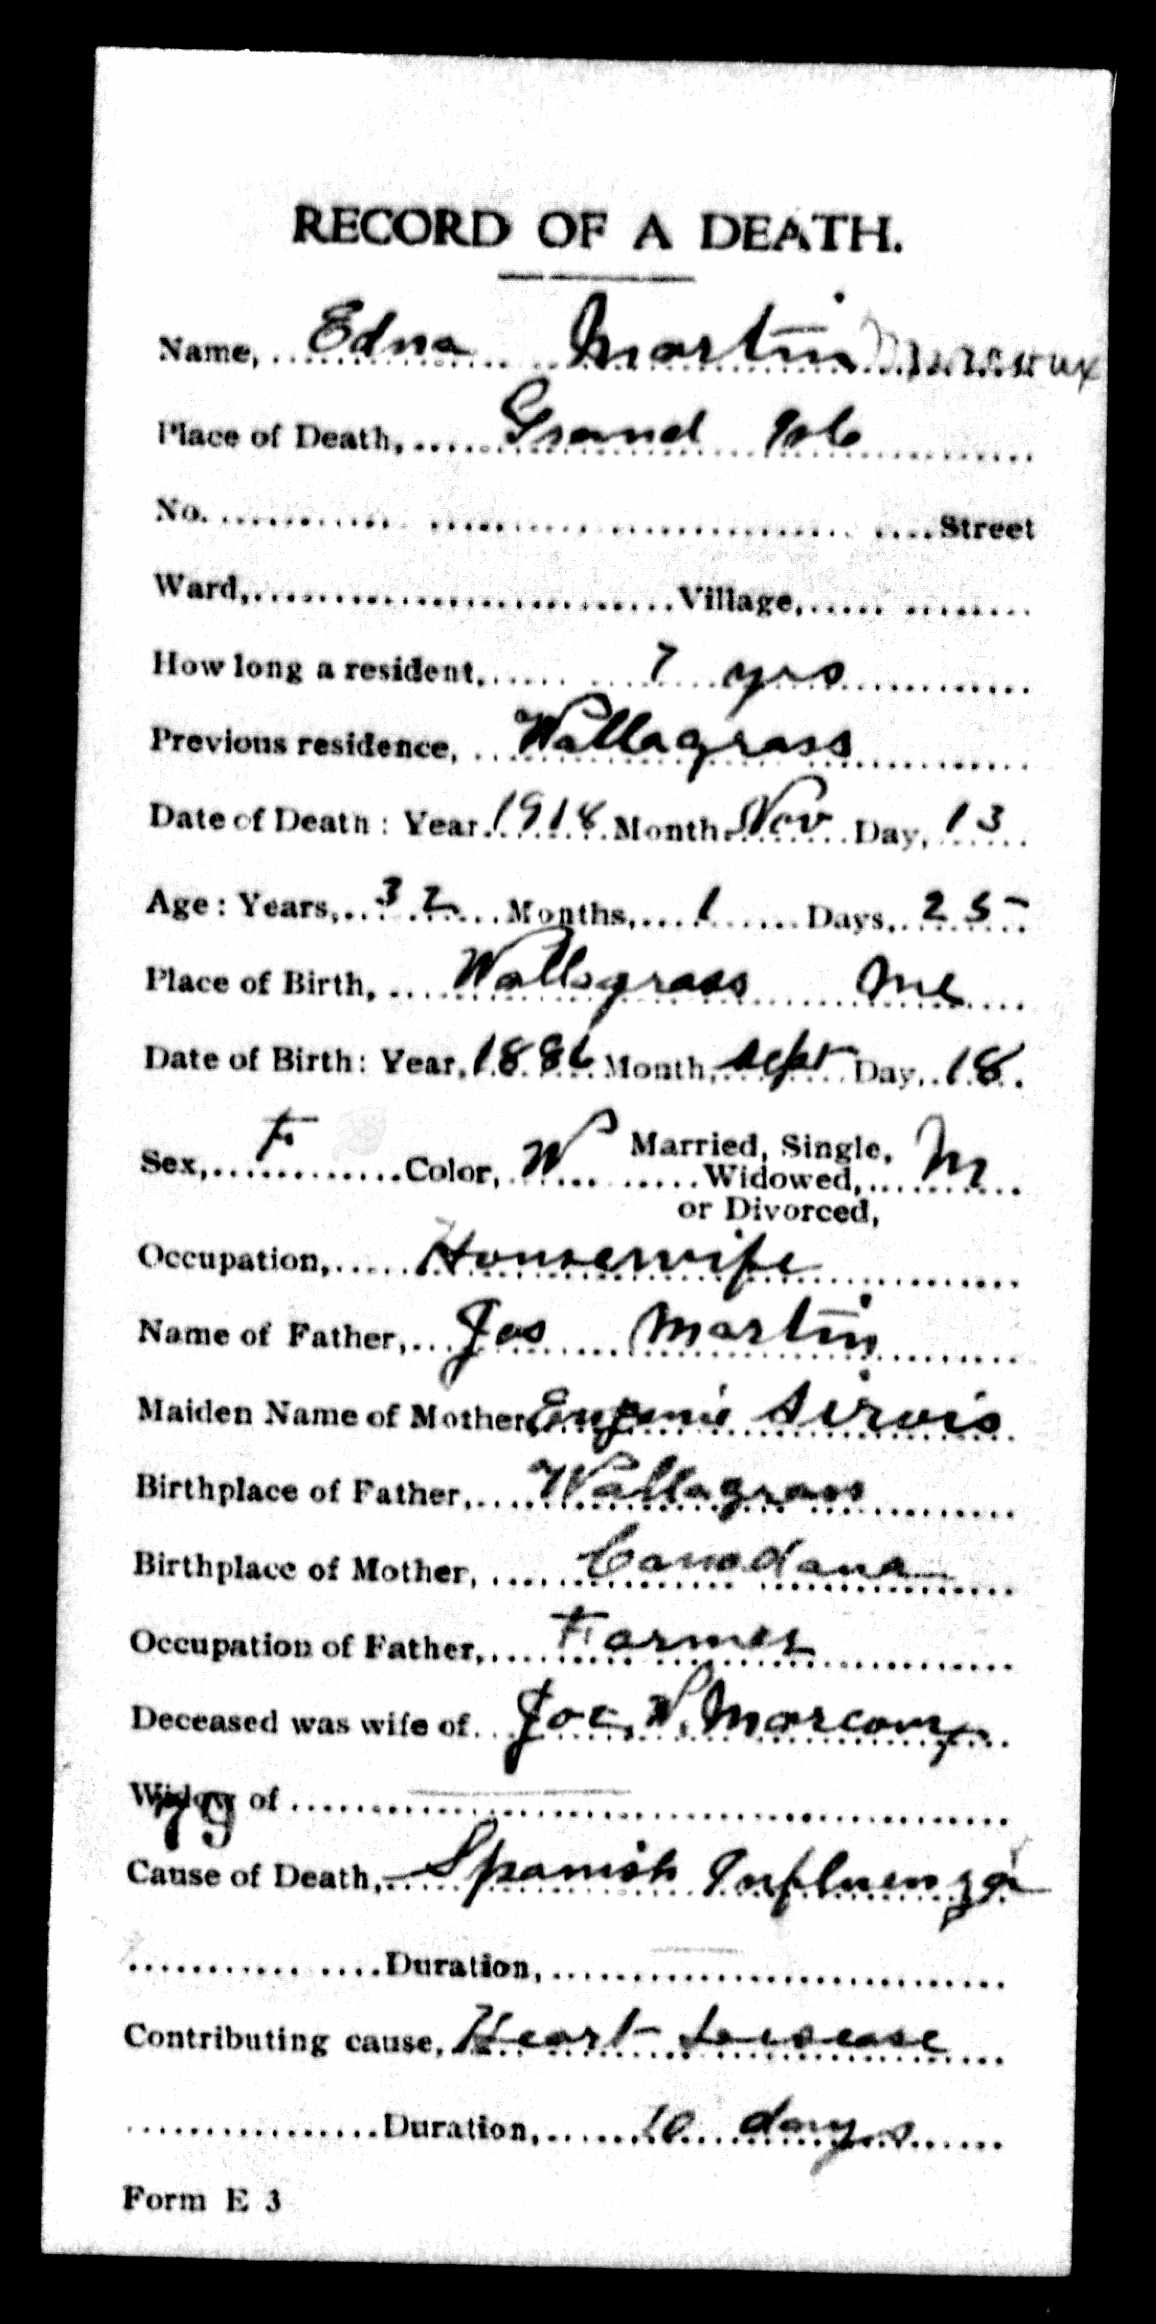 RECORD OF A DEATH.
Name, Edna Martin
Place of Death, Grand Isle
No. Street
Ward, Village,
How long a resident, 7 yrs
Previous residence, Wallagrass
Date of Death: Year 1918 Month Nov Day, 13
Age: Years, 32 Months, 1 Days, 25
Place of Birth, Wallagrass Me
Date of Birth: Year, 1886 Month, Sept Day 18
Sex, F. Color, W Married, Single, M
Widowed,
or Divorced,
Occupation, Housewife
Name of Father, Jos Martin
Maiden Name of Mother Eugenie Sirois
Birthplace of Father, Wallagrass
Birthplace of Mother, Canadana
Occupation of Father, Farmer
Deceased was wife of Joe. W.
Widow of
79
Cause of Death, Spanish Influenza
Duration,
Contributing cause, Heart Disease
Duration, 10 days
Form E 3